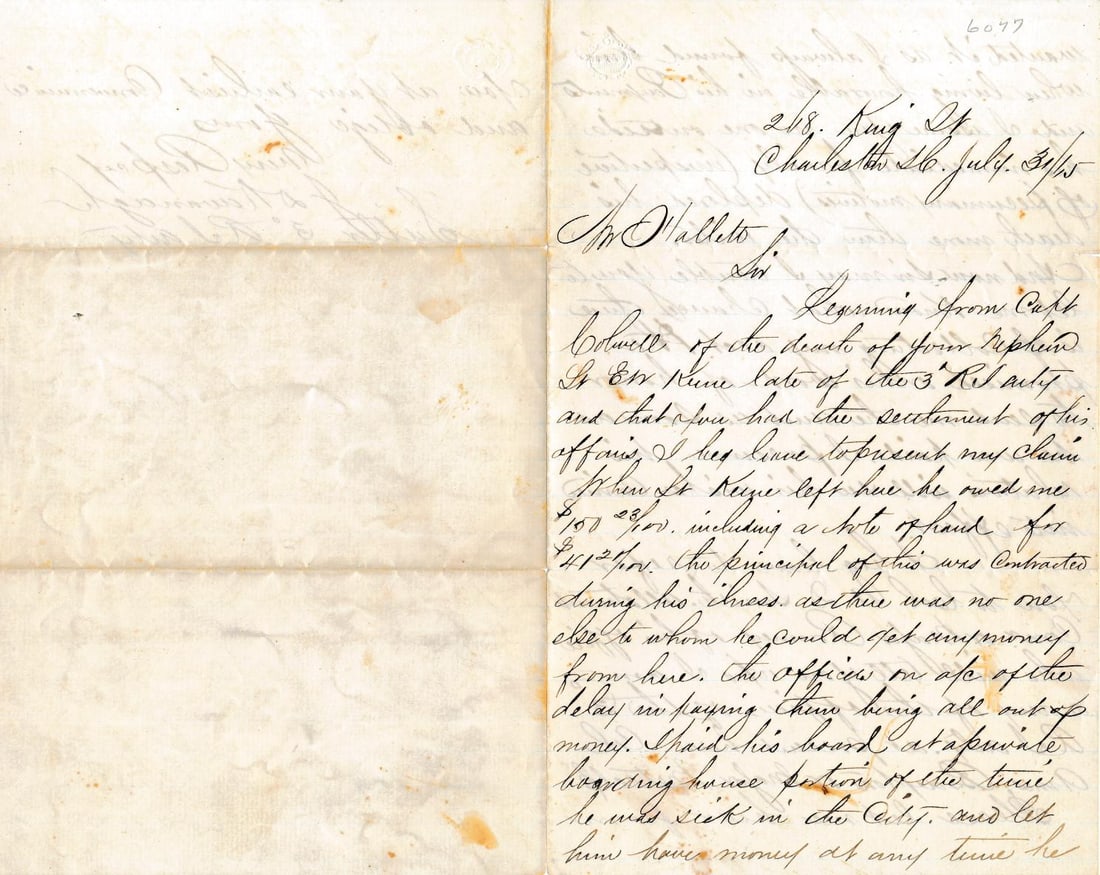 6077
268. King St
Charleston SC. July. 31/65
Mr Hallett
Sir
Learning from Capt
Colwell of the death of your Nephew
Lt EW Keene late of the 3d R.I arty
and that you had the settlement of his
affairs, I beg leave to present my claim
When Lt Keene left here he owed me
$150 23/100. including a Note of hand for
$41 21/100. the principal of this was contracted
during his ilness. as there was no one
else to whom he could get any money
from here. the officers on a/c of the
delay in paying them being all out of
money. I paid his board at a private
boarding house portion of the time
he was sick in the City. and let
him have money at any time he